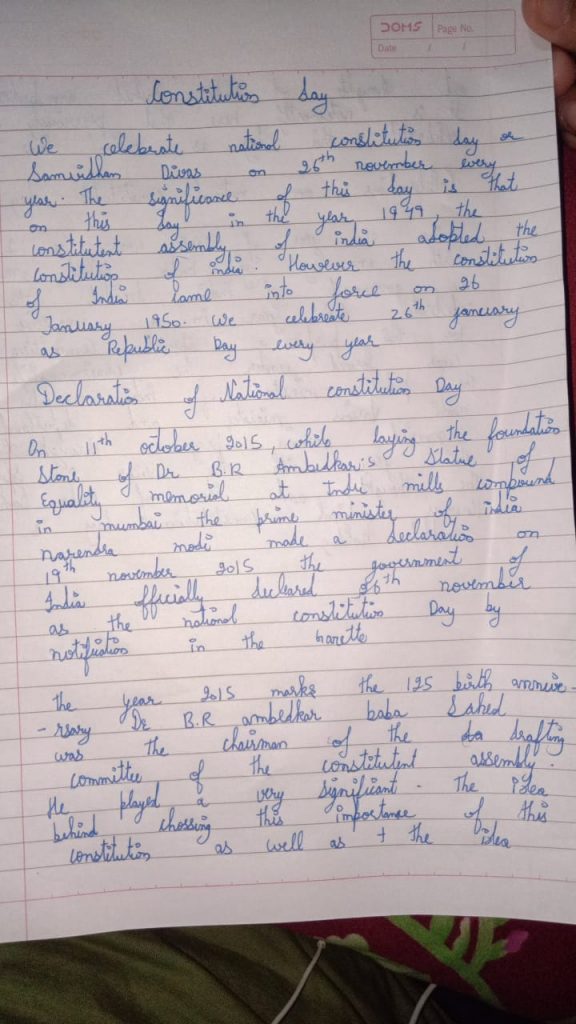 DOMS Page No.
Date / /
Constitution day
We celebrate national constitution day or
Samvidhan Divas on 26th november every
year. The significance of this day is that
on this day in the year 1949, the
constitutent assembly of india adopted the
constitution of india. However the constitution
of India came into force on 26
January 1950. We celebreate 26th january
as Republic Day every year
Declaration of National constitution Day
On 11th october 2015, while laying the foundation
Stone of Dr B.R Ambedkar's Statue of
Equality memorial at Indu mills compound
in mumbai the prime minister of india
narendra modi made a declaration on
19th november 2015 the government of
India officially declared 26th november
as the national constitution Day by
notification in the
the year 2015 marks the 125 birth annive-
-rsary Dr B.R ambedkar baba Sahed
was the chairman of the drafting
committee of the constitutent assembly.
He played a very significant. The idea
behind chossing this importance of this
constitution as well as + the idea